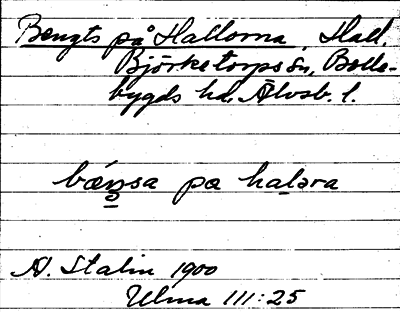 Bengts på Hallorna, Hall.
Björketorps sn, Bolle-
bygds hd, Älvsb. l.
bœ́n̠sa pœ hal̠əra
A. Stalin 1900
Ulma 111:25